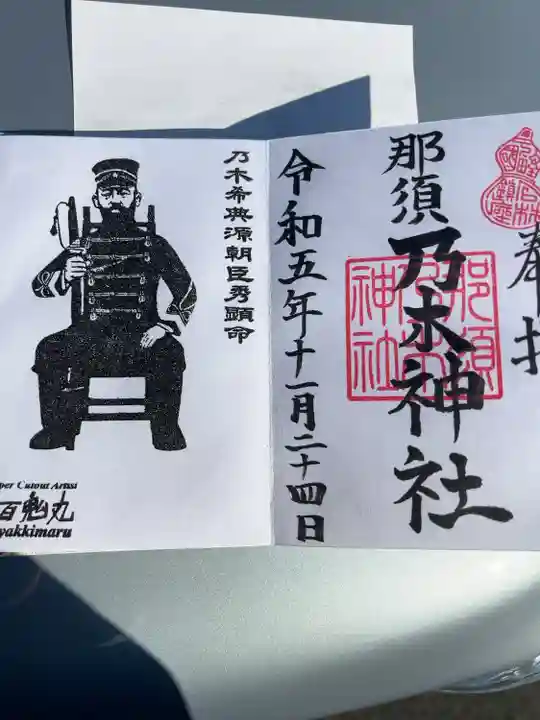 奉拝
那須乃木神社
那須乃木神社
令和五年十一月二十四日
乃木希典源朝臣秀顕命
per Cutout Artist
百鬼丸
yakkimaru